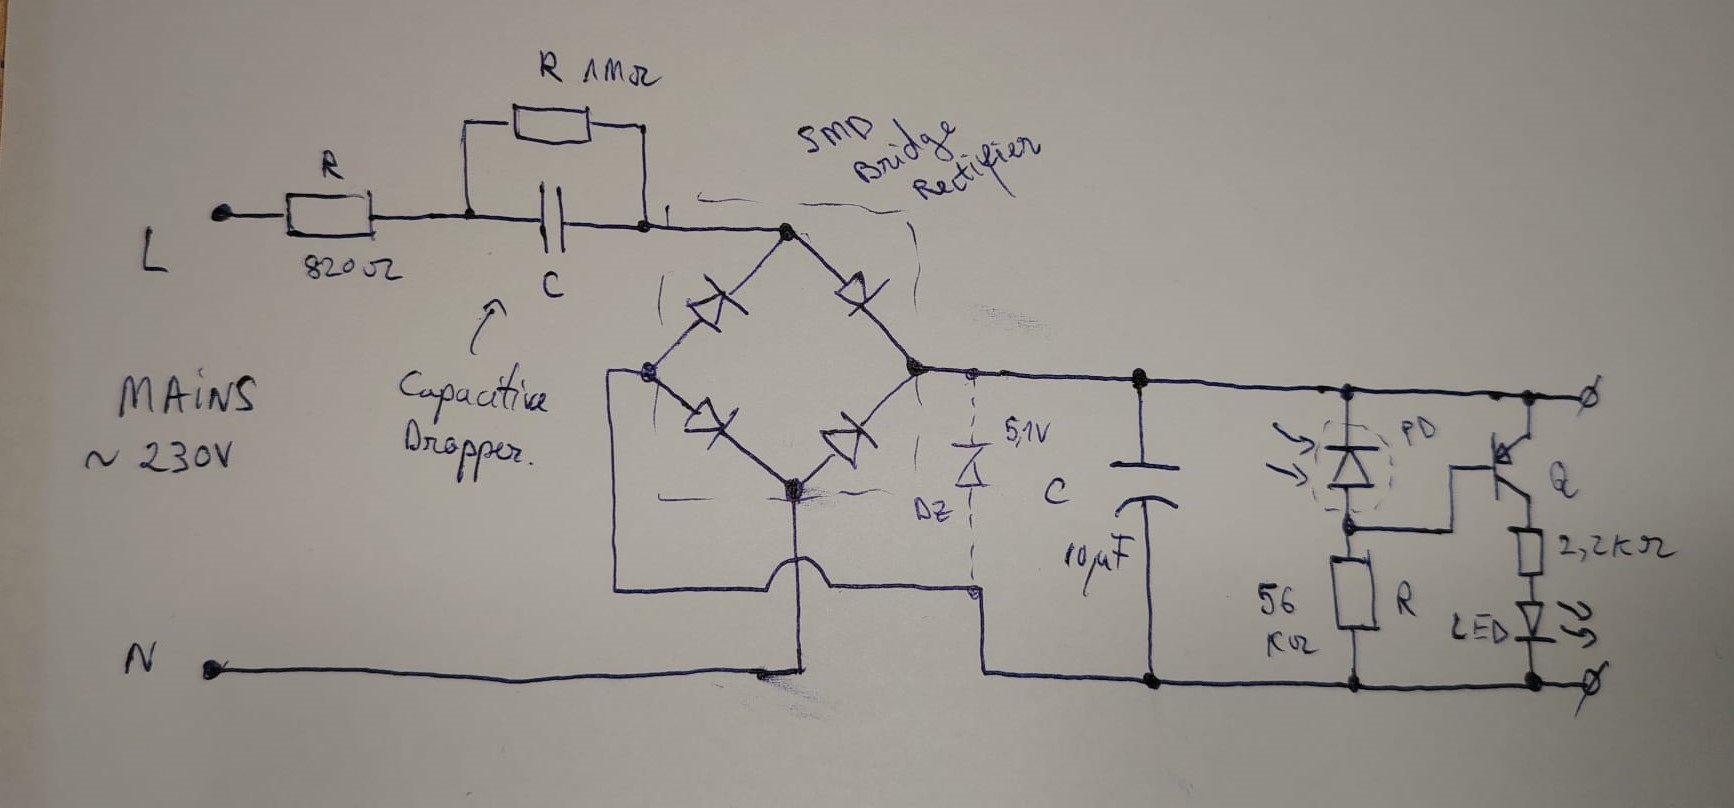 R 1MΩ
SMD
Bridge
Rectifier
R
820Ω
L
C
Capacitive
Dropper.
MAiNS
~ 230V
5,1V
DZ
C
10µF
PD
Q
2,2KΩ
56
KΩ
R
LED
N